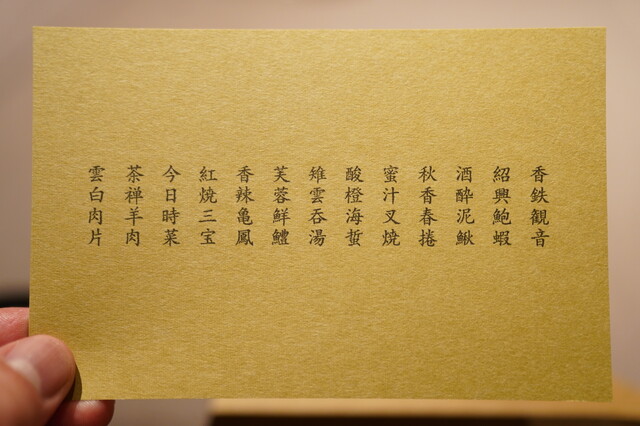 香鉄観音
紹興鮑蝦
酒酔泥鰍
秋香春捲
蜜汁叉焼
酸橙海蜇
雉雲呑湯
芙蓉鮮鱧
香辣亀鳳
紅焼三宝
今日時菜
茶禅羊肉
雲白肉片